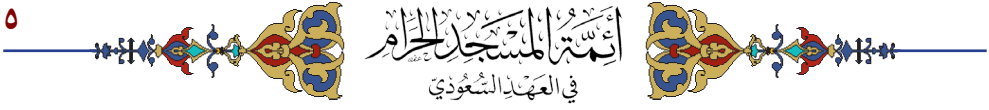 ٥
أَئِمَّةُ المَسْجِدِ الحَرَامِ
في العَهْدِ السُّعُودِيّ